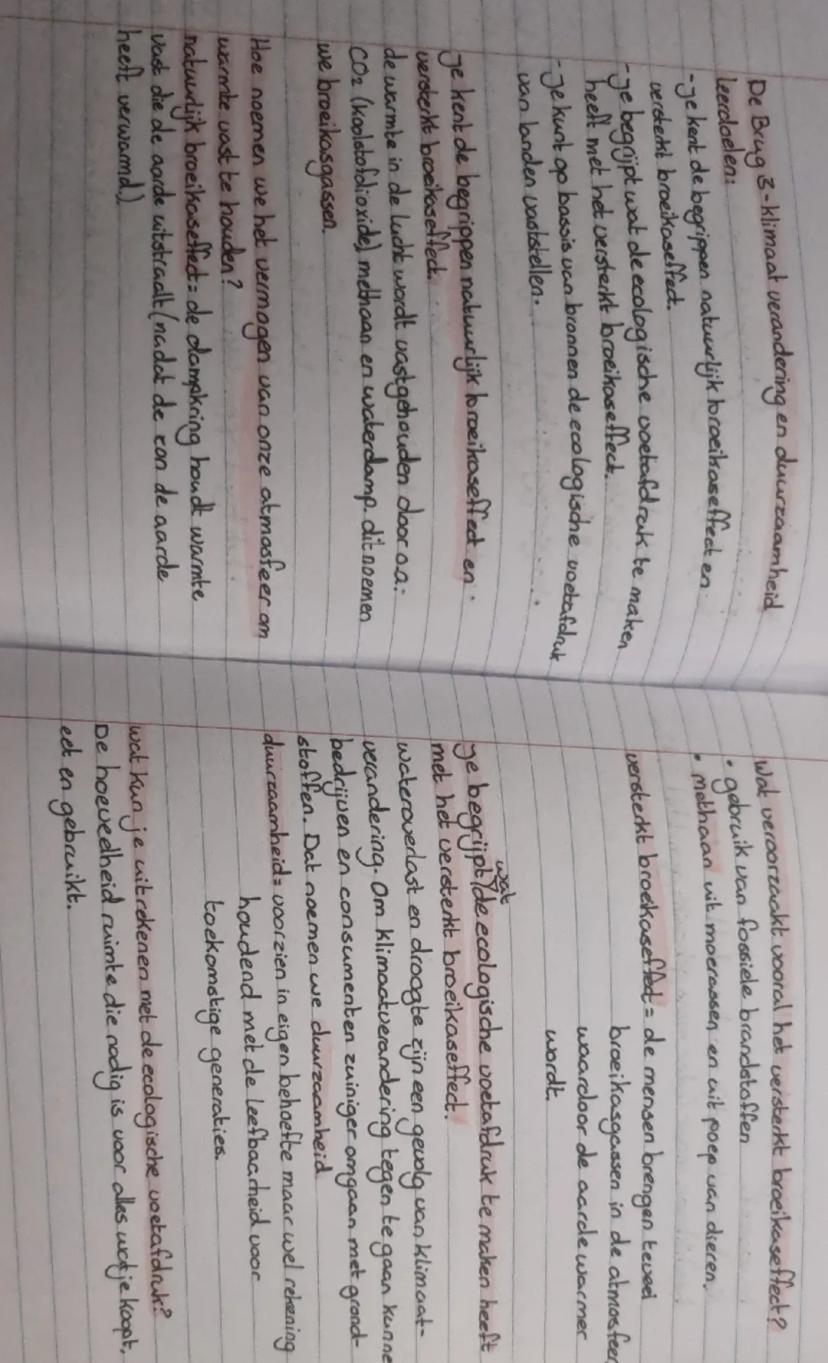 De Brug 3-klimaat verandering en duurzaamheid
leerdoelen:
-je kent de begrippen natuurlijk broeikaseffect en
versterkt broeikaseffect.
-je begrijpt wat de ecologische voetafdruk te maken
heeft met het versterkt broeikaseffect.
-je kunt op bassis van bronnen de ecologische voetafdruk
van landen vaststellen.
je kent de begrippen natuurlijk broeikaseffect en
versterkt broeikaseffect.
de warmte in de lucht wordt vastgehouden door o.a:
CO2 (koolstofdioxide), methaan en waterdamp. dit noemen
we broeikasgassen.
Hoe noemen we het vermogen van onze atmosfeer om
warmte vast te houden?
natuurlijk broeikaseffect= de dampkring houdt warmte
vast die de aarde uitstraalt (nadat de zon de aarde
heeft verwarmd.)
Wat veroorzaakt vooral het versterkt broeikaseffect?
• gebruik van fossiele brandstoffen
• methaan uit moerassen en uit poep van dieren.
versterkt broeikaseffect= de mensen brengen teveel
broeikasgassen in de atmosfeer
waardoor de aarde warmer
wordt.
je begrijpt wat de ecologische voetafdruk te maken heeft
met het versterkt broeikaseffect.
wateroverlast en droogte zijn een gevolg van klimaat-
verandering. Om klimaatverandering tegen te gaan kunne
bedrijven en consumenten zuiniger omgaan met grond-
stoffen. Dat noemen we duurzaamheid
duurzaamheid= voorzien in eigen behoefte maar wel rekening
houdend met de leefbaarheid voor
toekomstige generaties.
wat kun je uitrekenen met de ecologische voetafdruk?
De hoeveelheid ruimte die nodig is voor alles wat je koopt,
eet en gebruikt.